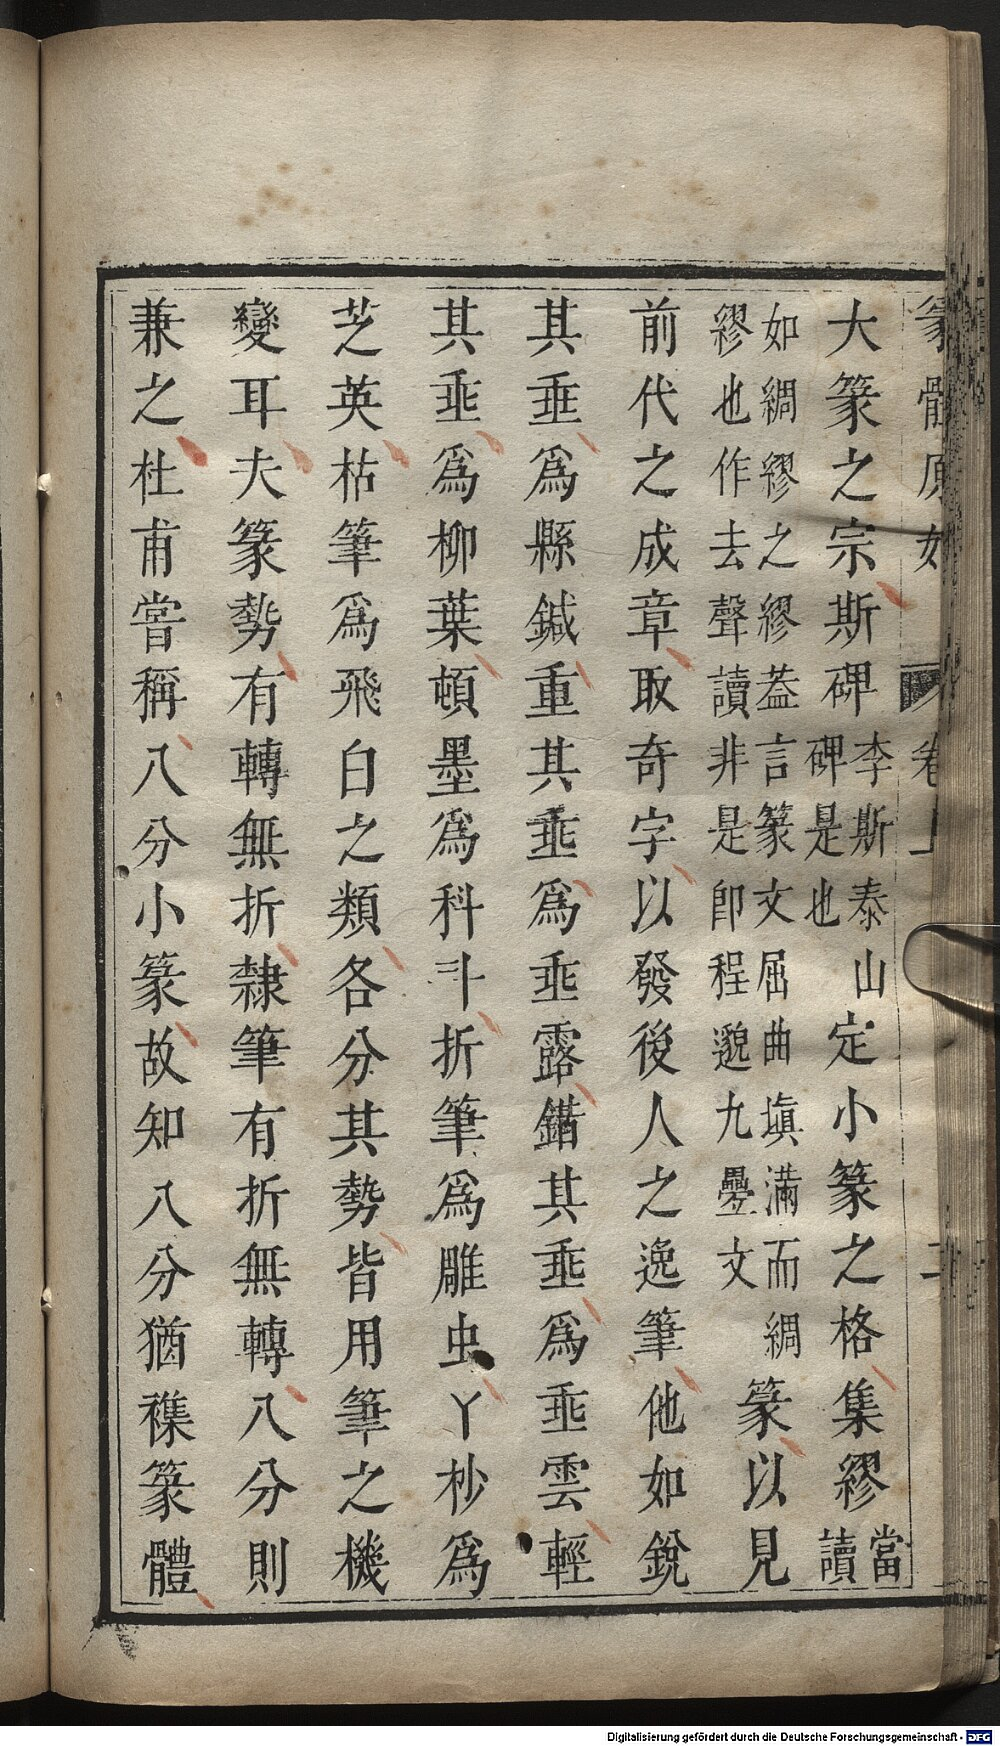 篆體原始 卷上 二
大篆之宗斯碑李斯泰山碑是也定小篆之格集繆當讀
如綢繆之繆葢言篆文屈曲塡滿而綢繆也作去聲讀非是卽程邈九疊文篆以見
前代之成章取奇字以發後人之逸筆他如銳
其垂爲縣鍼重其垂爲垂露錯其垂爲垂雲輕
其垂爲柳葉頓墨爲科斗折筆爲雕虫丫杪爲
芝英枯筆爲飛白之類各分其勢皆用筆之機
變耳夫篆勢有轉無折隸筆有折無轉八分則
兼之杜甫嘗稱八分小篆故知八分猶襍篆體
Digitalisierung gefördert durch die Deutsche Forschungsgemeinschaft - DFG